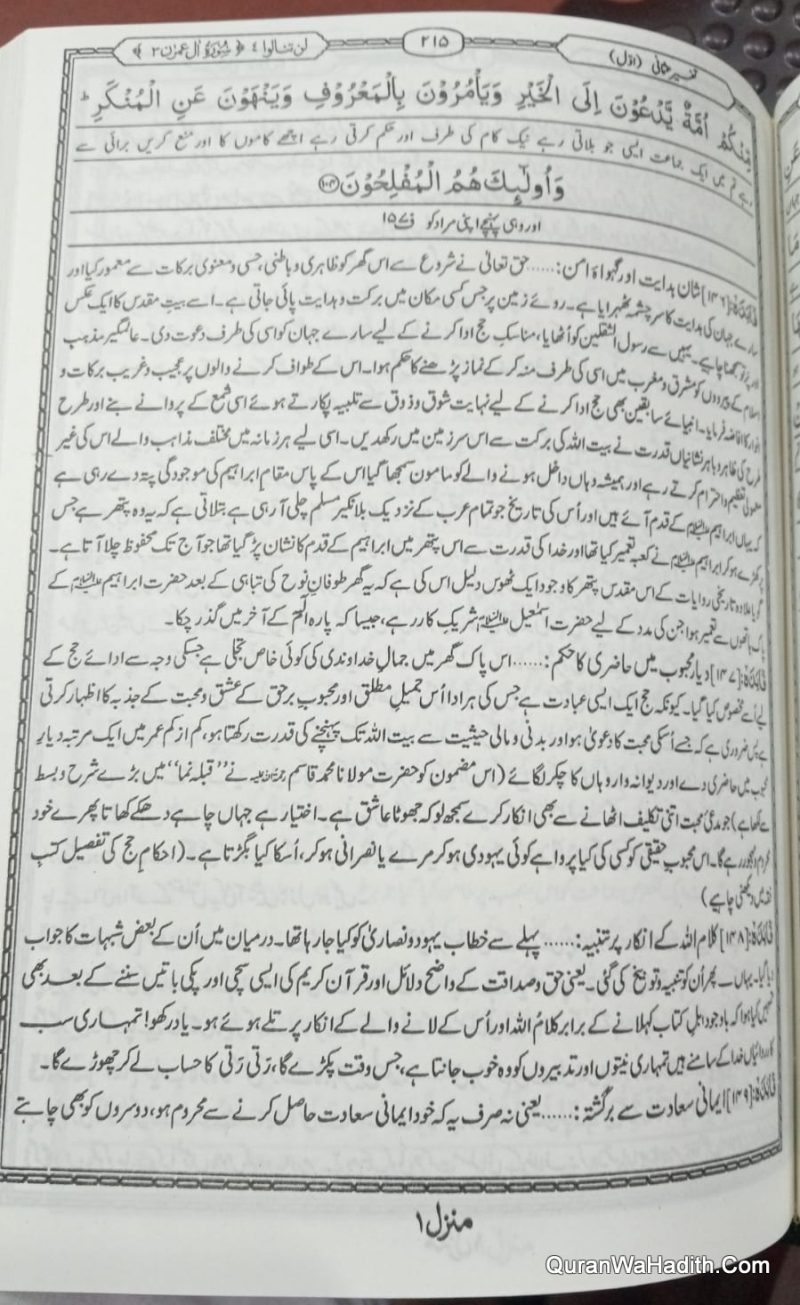 تفسیر عثمانی (اوّل)
۲۱۵
لن تنالوا ٤ ﴿ سُوْرَۃُ اٰل عمرٰن ۳ ﴾
مِّنْكُمْ اُمَّةٌ یَّدْعُوْنَ اِلَى الْخَیْرِ وَیَاْمُرُوْنَ بِالْمَعْرُوْفِ وَیَنْهَوْنَ عَنِ الْمُنْكَرِ ؕ
رہے تم میں ایک جماعت ایسی جو بلاتی رہے نیک کام کی طرف اور حکم کرتی رہے اچھے کاموں کا اور منع کریں برائی سے
وَاُولٰٓىِٕكَ هُمُ الْمُفْلِحُوْنَ ﴿۱۰۴﴾
اور وہی پہنچے اپنی مراد کو ف۱۵۷
فَائِدَہ: [۱۳۶] شان ہدایت اور گہوارۂ امن: ...... حق تعالیٰ نے شروع سے اس گھر کو ظاہری و باطنی، حسی و معنوی برکات سے معمور کیا اور
سارے جہان کی ہدایت کا سرچشمہ ٹھہرایا ہے۔ روئے زمین پر جس کسی مکان میں برکت و ہدایت پائی جاتی ہے۔ اسے بیت مقدس کا ایک عکس
اور پرتو سمجھنا چاہیے۔ یہیں سے رسول الثقلین کو اُٹھایا، مناسکِ حج ادا کرنے کے لیے سارے جہان کو اسی کی طرف دعوت دی۔ عالمگیر مذہب
اسلام کے پیروں کو مشرق و مغرب میں اسی کی طرف منہ کر کے نماز پڑھنے کا حکم ہوا۔ اس کے طواف کرنے والوں پر عجیب و غریب برکات و
انوار کا افاضہ فرمایا۔ انبیائے سابقین بھی حج ادا کرنے کے لیے نہایت شوق و ذوق سے تلبیہ پکارتے ہوئے اسی شمع کے پروانے بنے اور طرح
طرح کی ظاہر و باہر نشانیاں قدرت نے بیت اللہ کی برکت سے اس سرزمین میں رکھدیں۔ اسی لیے ہر زمانہ میں مختلف مذاہب والے اس کی غیر
معمولی تعظیم و احترام کرتے رہے اور ہمیشہ وہاں داخل ہونے والے کو مامون سمجھا گیا اس کے پاس مقامِ ابراہیم کی موجودگی پتہ دے رہی ہے
کہ یہاں ابراہیم علیہ السلام کے قدم آئے ہیں اور اُس کی تاریخ جو تمام عرب کے نزدیک بلا نکیر مسلم چلی آ رہی ہے بتلاتی ہے کہ یہ وہ پتھر ہے جس
پر کھڑے ہو کر ابراہیم علیہ السلام نے کعبہ تعمیر کیا تھا اور خدا کی قدرت سے اس پتھر میں ابراہیم کے قدم کا نشان پڑ گیا تھا جو آج تک محفوظ چلا آتا ہے۔
گویا علاوہ تاریخی روایات کے اس مقدس پتھر کا وجود ایک ٹھوس دلیل اس کی ہے کہ یہ گھر طوفانِ نوح کی تباہی کے بعد حضرت ابراہیم علیہ السلام کے
پاک ہاتھوں سے تعمیر ہوا جن کی مدد کے لیے حضرت اسمٰعیل علیہ السلام شریکِ کار رہے، جیسا کہ پارہ الٓم کے آخر میں گذر چکا۔
فَائِدَہ: [۱۳۷] دیارِ محبوب میں حاضری کا حکم: ...... اس پاک گھر میں جمالِ خداوندی کی کوئی خاص تجلی ہے جسکی وجہ سے ادائے حج کے
لیے اُسے مخصوص کیا گیا۔ کیونکہ حج ایک ایسی عبادت ہے جس کی ہر ادا اُس جمیلِ مطلق اور محبوبِ برحق کے عشق و محبت کے جذبہ کا اظہار کرتی
ہے پس ضروری ہے کہ جسے اُسکی محبت کا دعویٰ ہو اور بدنی و مالی حیثیت سے بیت اللہ تک پہنچنے کی قدرت رکھتا ہو، کم از کم عمر میں ایک مرتبہ دیارِ
محبوب میں حاضری دے اور دیوانہ وار وہاں کا چکر لگائے (اس مضمون کو حضرت مولانا محمد قاسم رحمۃ اللہ علیہ نے "قبلہ نما" میں بڑے شرح و بسط
سے لکھا ہے) جو مدعیٔ محبت اتنی تکلیف اٹھانے سے بھی انکار کرے سمجھ لو کہ جھوٹا عاشق ہے۔ اختیار ہے جہاں چاہے دھکے کھاتا پھرے خود
محروم و مہجور رہے گا۔ اس محبوبِ حقیقی کو کسی کی کیا پروا ہے کوئی یہودی ہو کر مرے یا نصرانی ہو کر، اُسکا کیا بگڑتا ہے۔ (احکامِ حج کی تفصیل کتبِ
فقہ میں دیکھنی چاہیے)
فَائِدَہ: [۱۳۸] کلام اللہ کے انکار پر تنبیہ: ...... پہلے سے خطاب یہود و نصاریٰ کو کیا جا رہا تھا۔ درمیان میں اُن کے بعض شبہات کا جواب
دیا گیا۔ یہاں سے پھر اُن کو تنبیہ و توبیخ کی گئی۔ یعنی حق و صداقت کے واضح دلائل اور قرآن کریم کی ایسی سچی اور پکی باتیں سننے کے بعد بھی
تمہیں کیا ہوا کہ باوجود اہلِ کتاب کہلانے کے برابر کلامُ اللہ اور اُس کے لانے والے کے انکار پر تلے ہوئے ہو۔ یاد رکھو! تمہاری سب
کارروائیاں خدا کے سامنے ہیں تمہاری نیتوں اور تدبیروں کو وہ خوب جانتا ہے، جس وقت پکڑے گا، رَتی رَتی کا حساب لے کر چھوڑے گا۔
فَائِدَہ: [۱۳۹] ایمانی سعادت سے برگشتہ: ...... یعنی نہ صرف یہ کہ خود ایمانی سعادت حاصل کرنے سے محروم ہو، دوسروں کو بھی چاہتے
منزل ۱
QuranWaHadith.Com